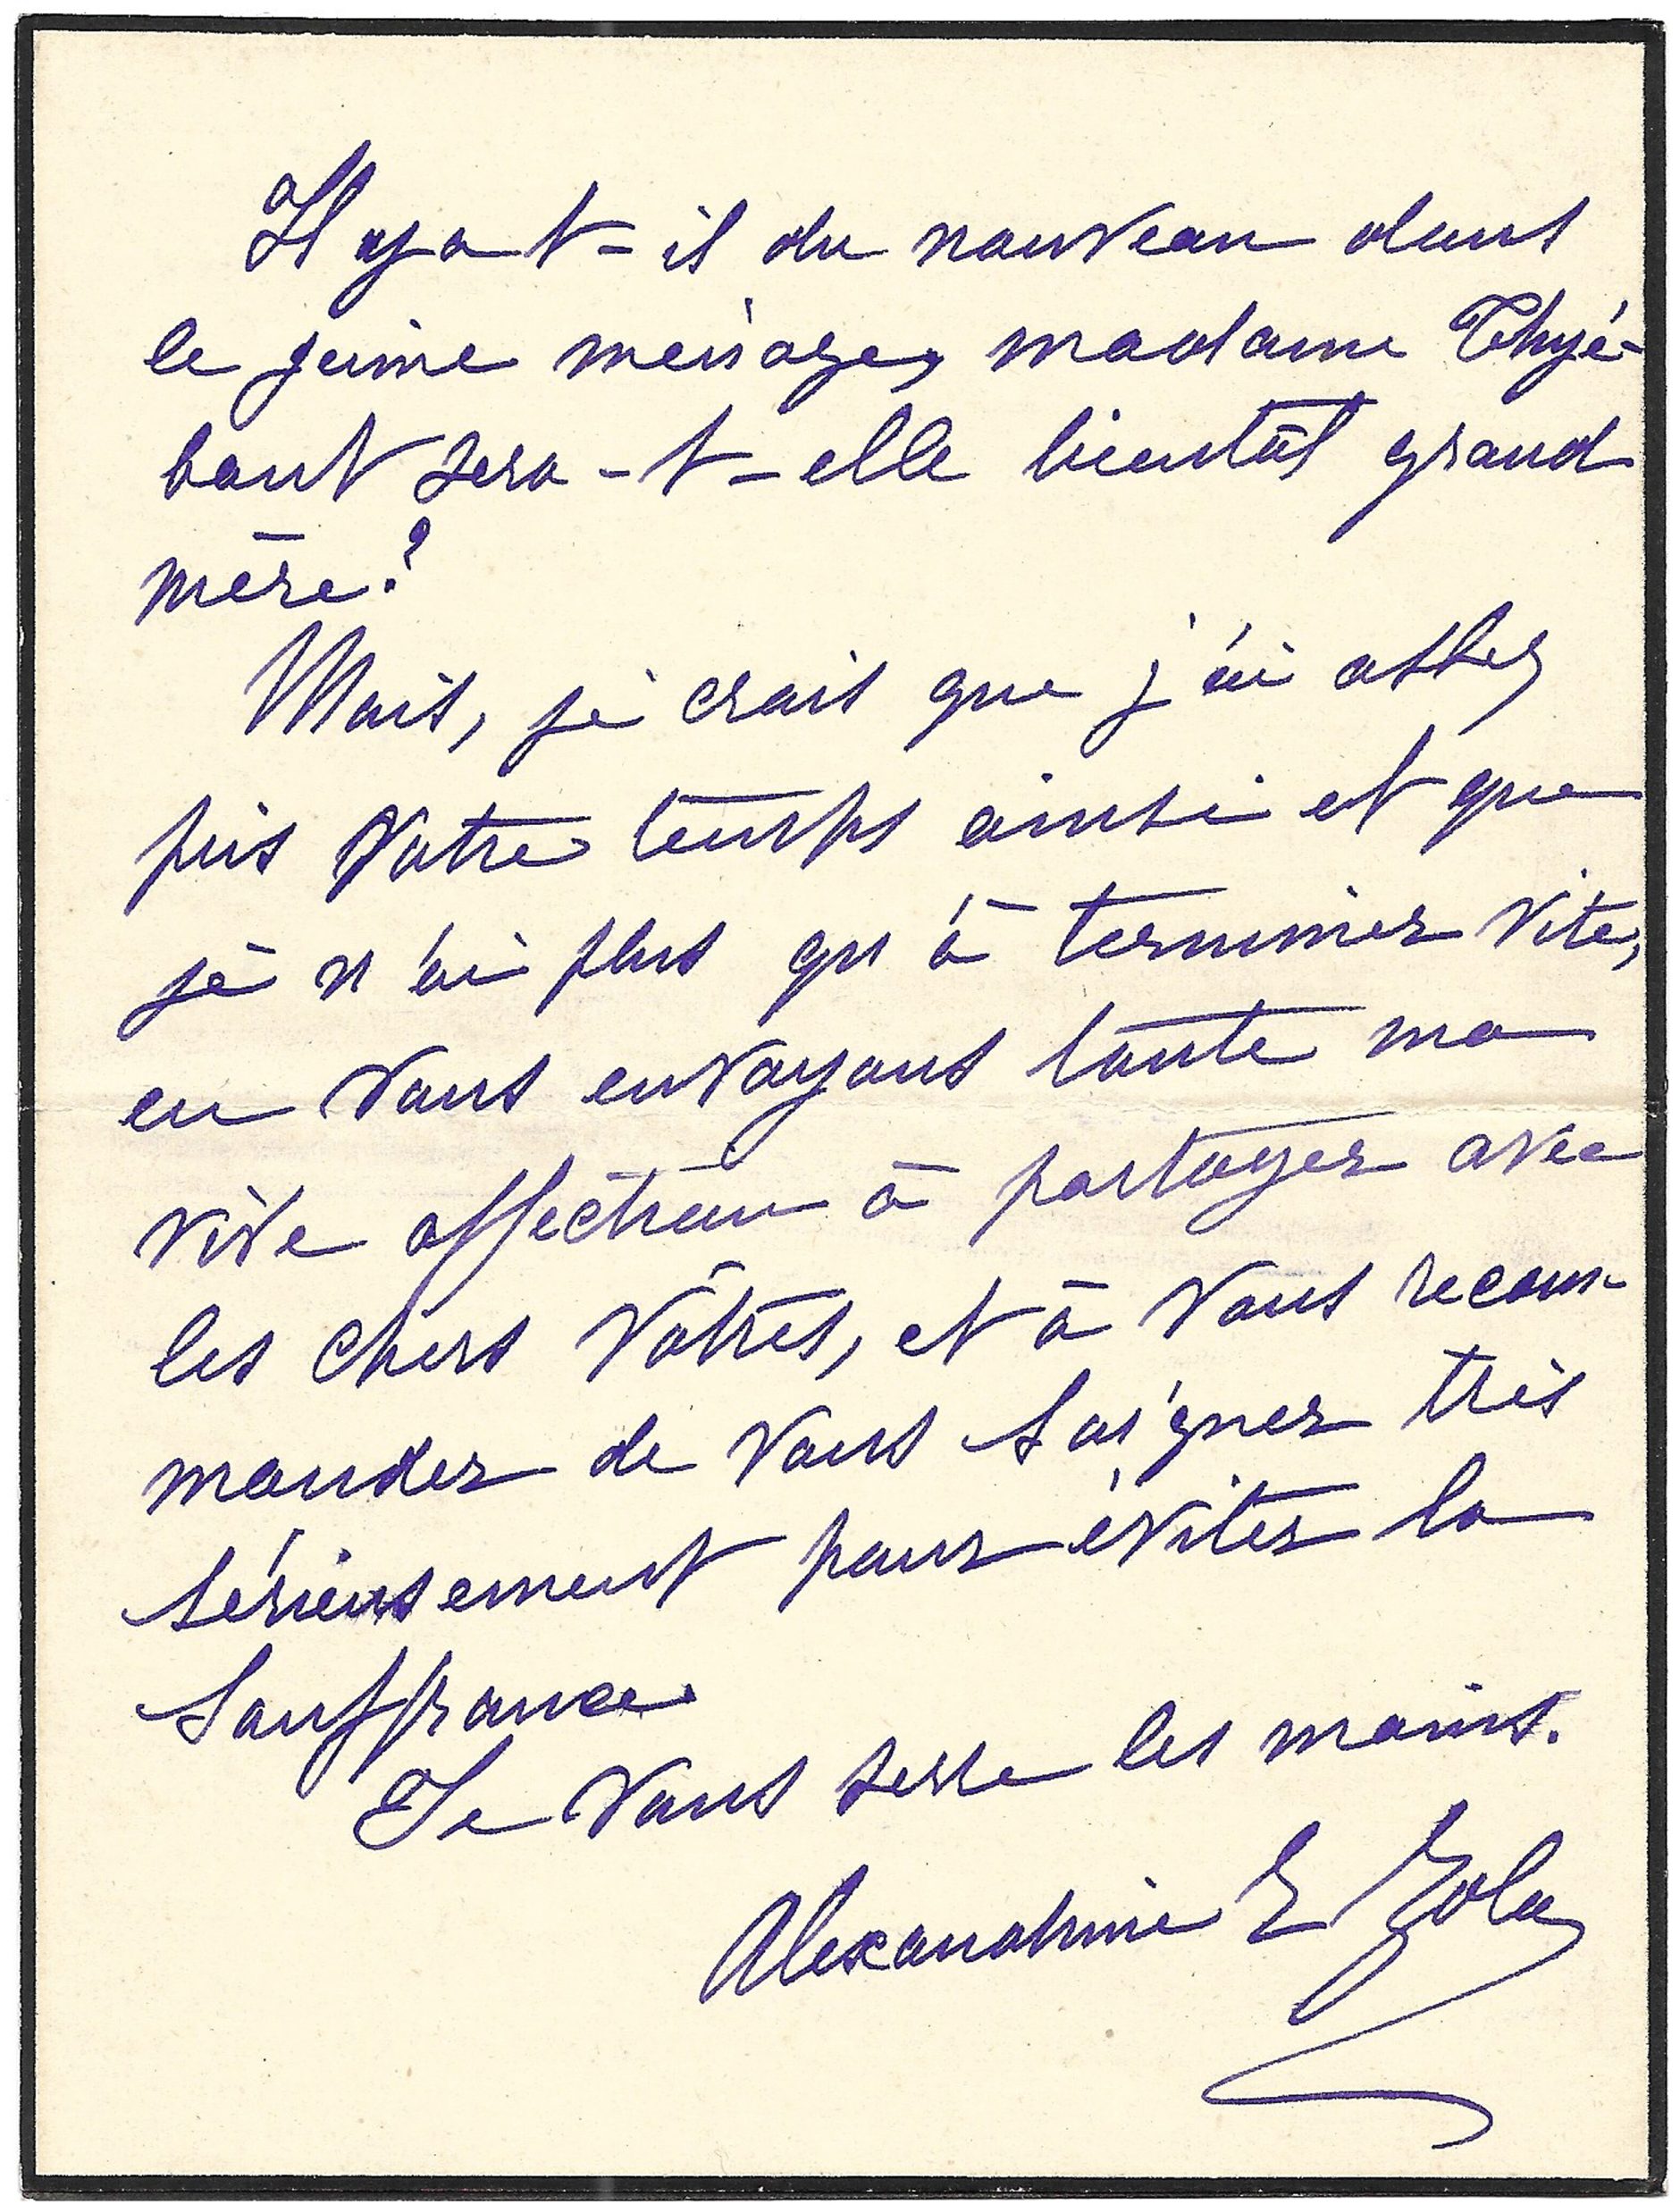 Il y a t-il du nouveau dans
le jeune ménage, madame Thyé-
baut sera-t-elle bientôt grand
mère?
Mais, je crois que j'ai assez
pris votre temps ainsi et que
je n'ai plus qu'à terminer vite,
en vous envoyant toute ma
vive affection à partager avec
les chers vôtres, et à vous recom-
mander de vous soigner très
sérieusement pour éviter la
souffrance.
Je vous serre les mains.
Alexandrine E Zola